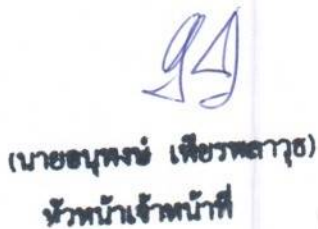 (นายอนุพงษ์ เพียรพลาวุธ)
หัวหน้าเจ้าหน้าที่